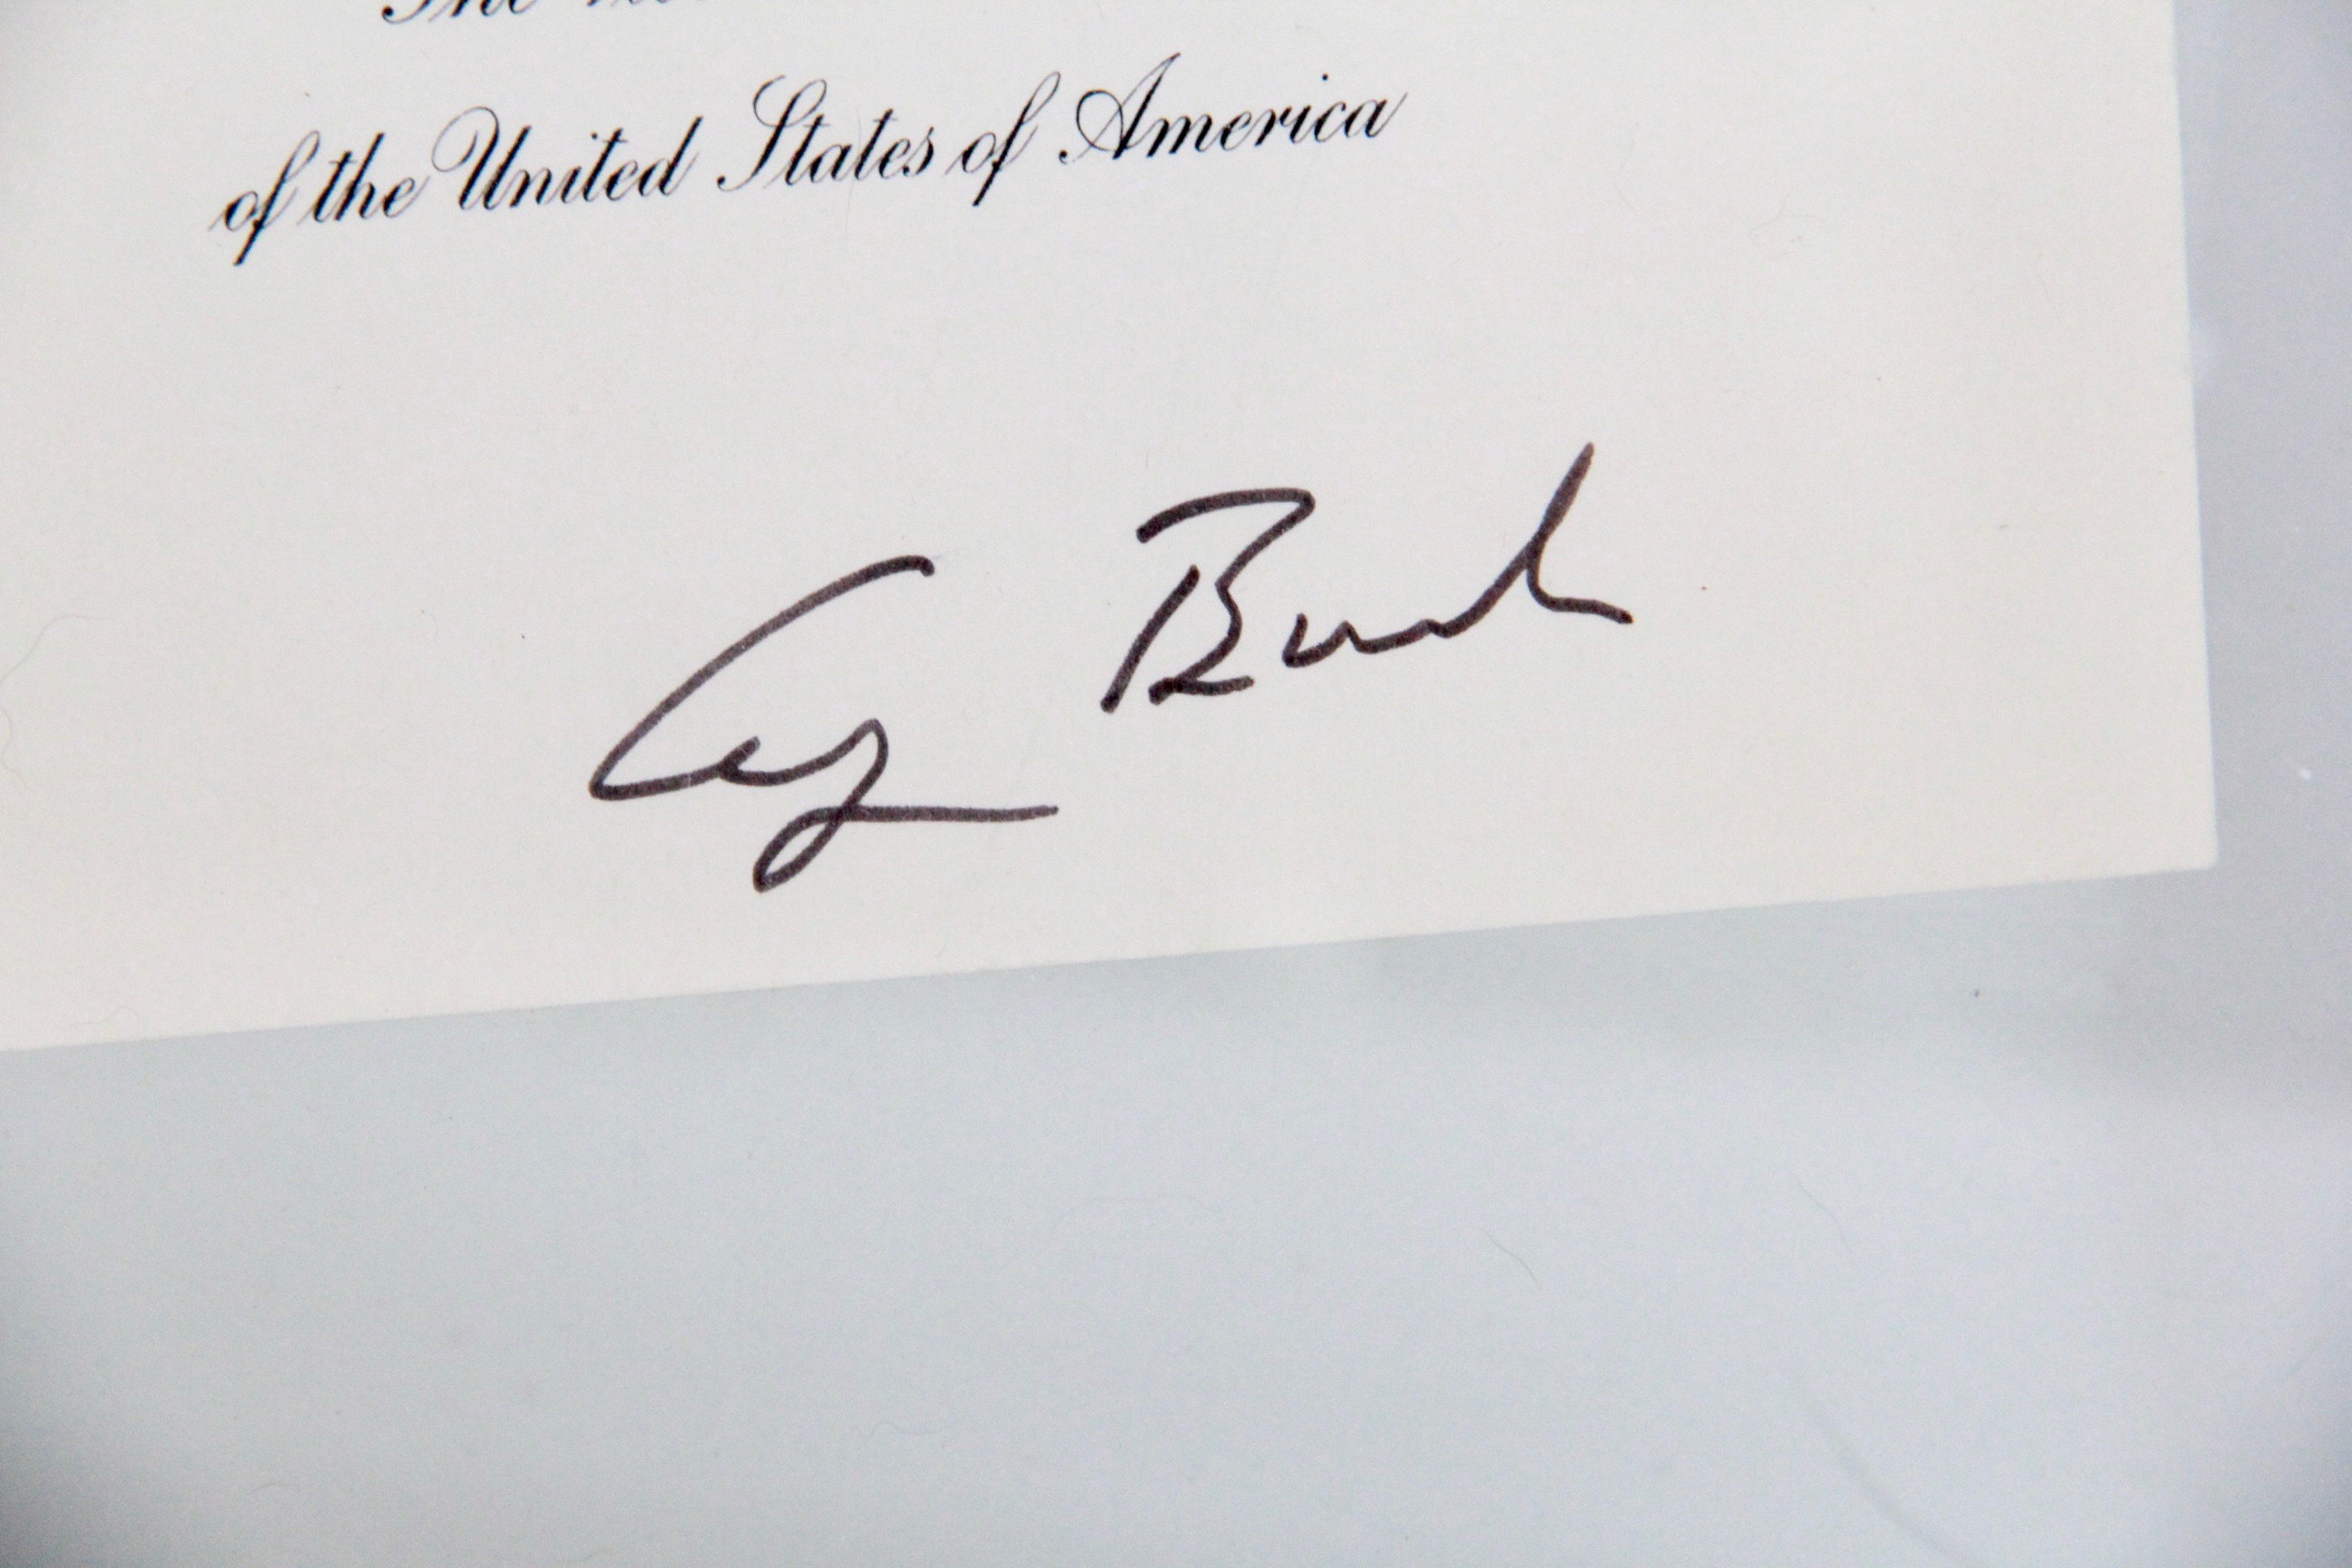 The
of the United States of America
Gey Bush